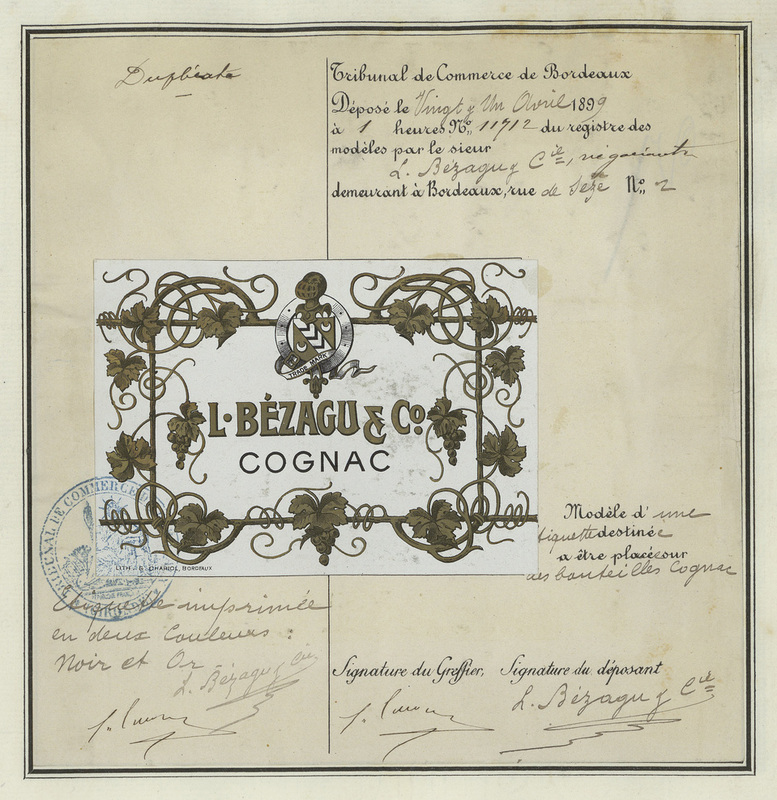 Duplicata
Tribunal de Commerce de Bordeaux
Déposé le Vingt & Un Avril 1899
à 1 heures No 11712 du registre des
modèles par le sieur
L. Bézagu & Cie, négociants
demeurant à Bordeaux, rue de Sèze No 2
TRADE MARK
L. BÉZAGU & Co
COGNAC
LITH. G. CHARIOL, BORDEAUX
TRIBUNAL DE COMMERCE
Modèle d'une
étiquette destinée
a être placée sur
des bouteilles Cognac
Etiquette imprimée
en deux Couleurs :
Noir et Or
L. Bézagu & Cie
Signature du Greffier, Signature du déposant
L. Bézagu & Cie